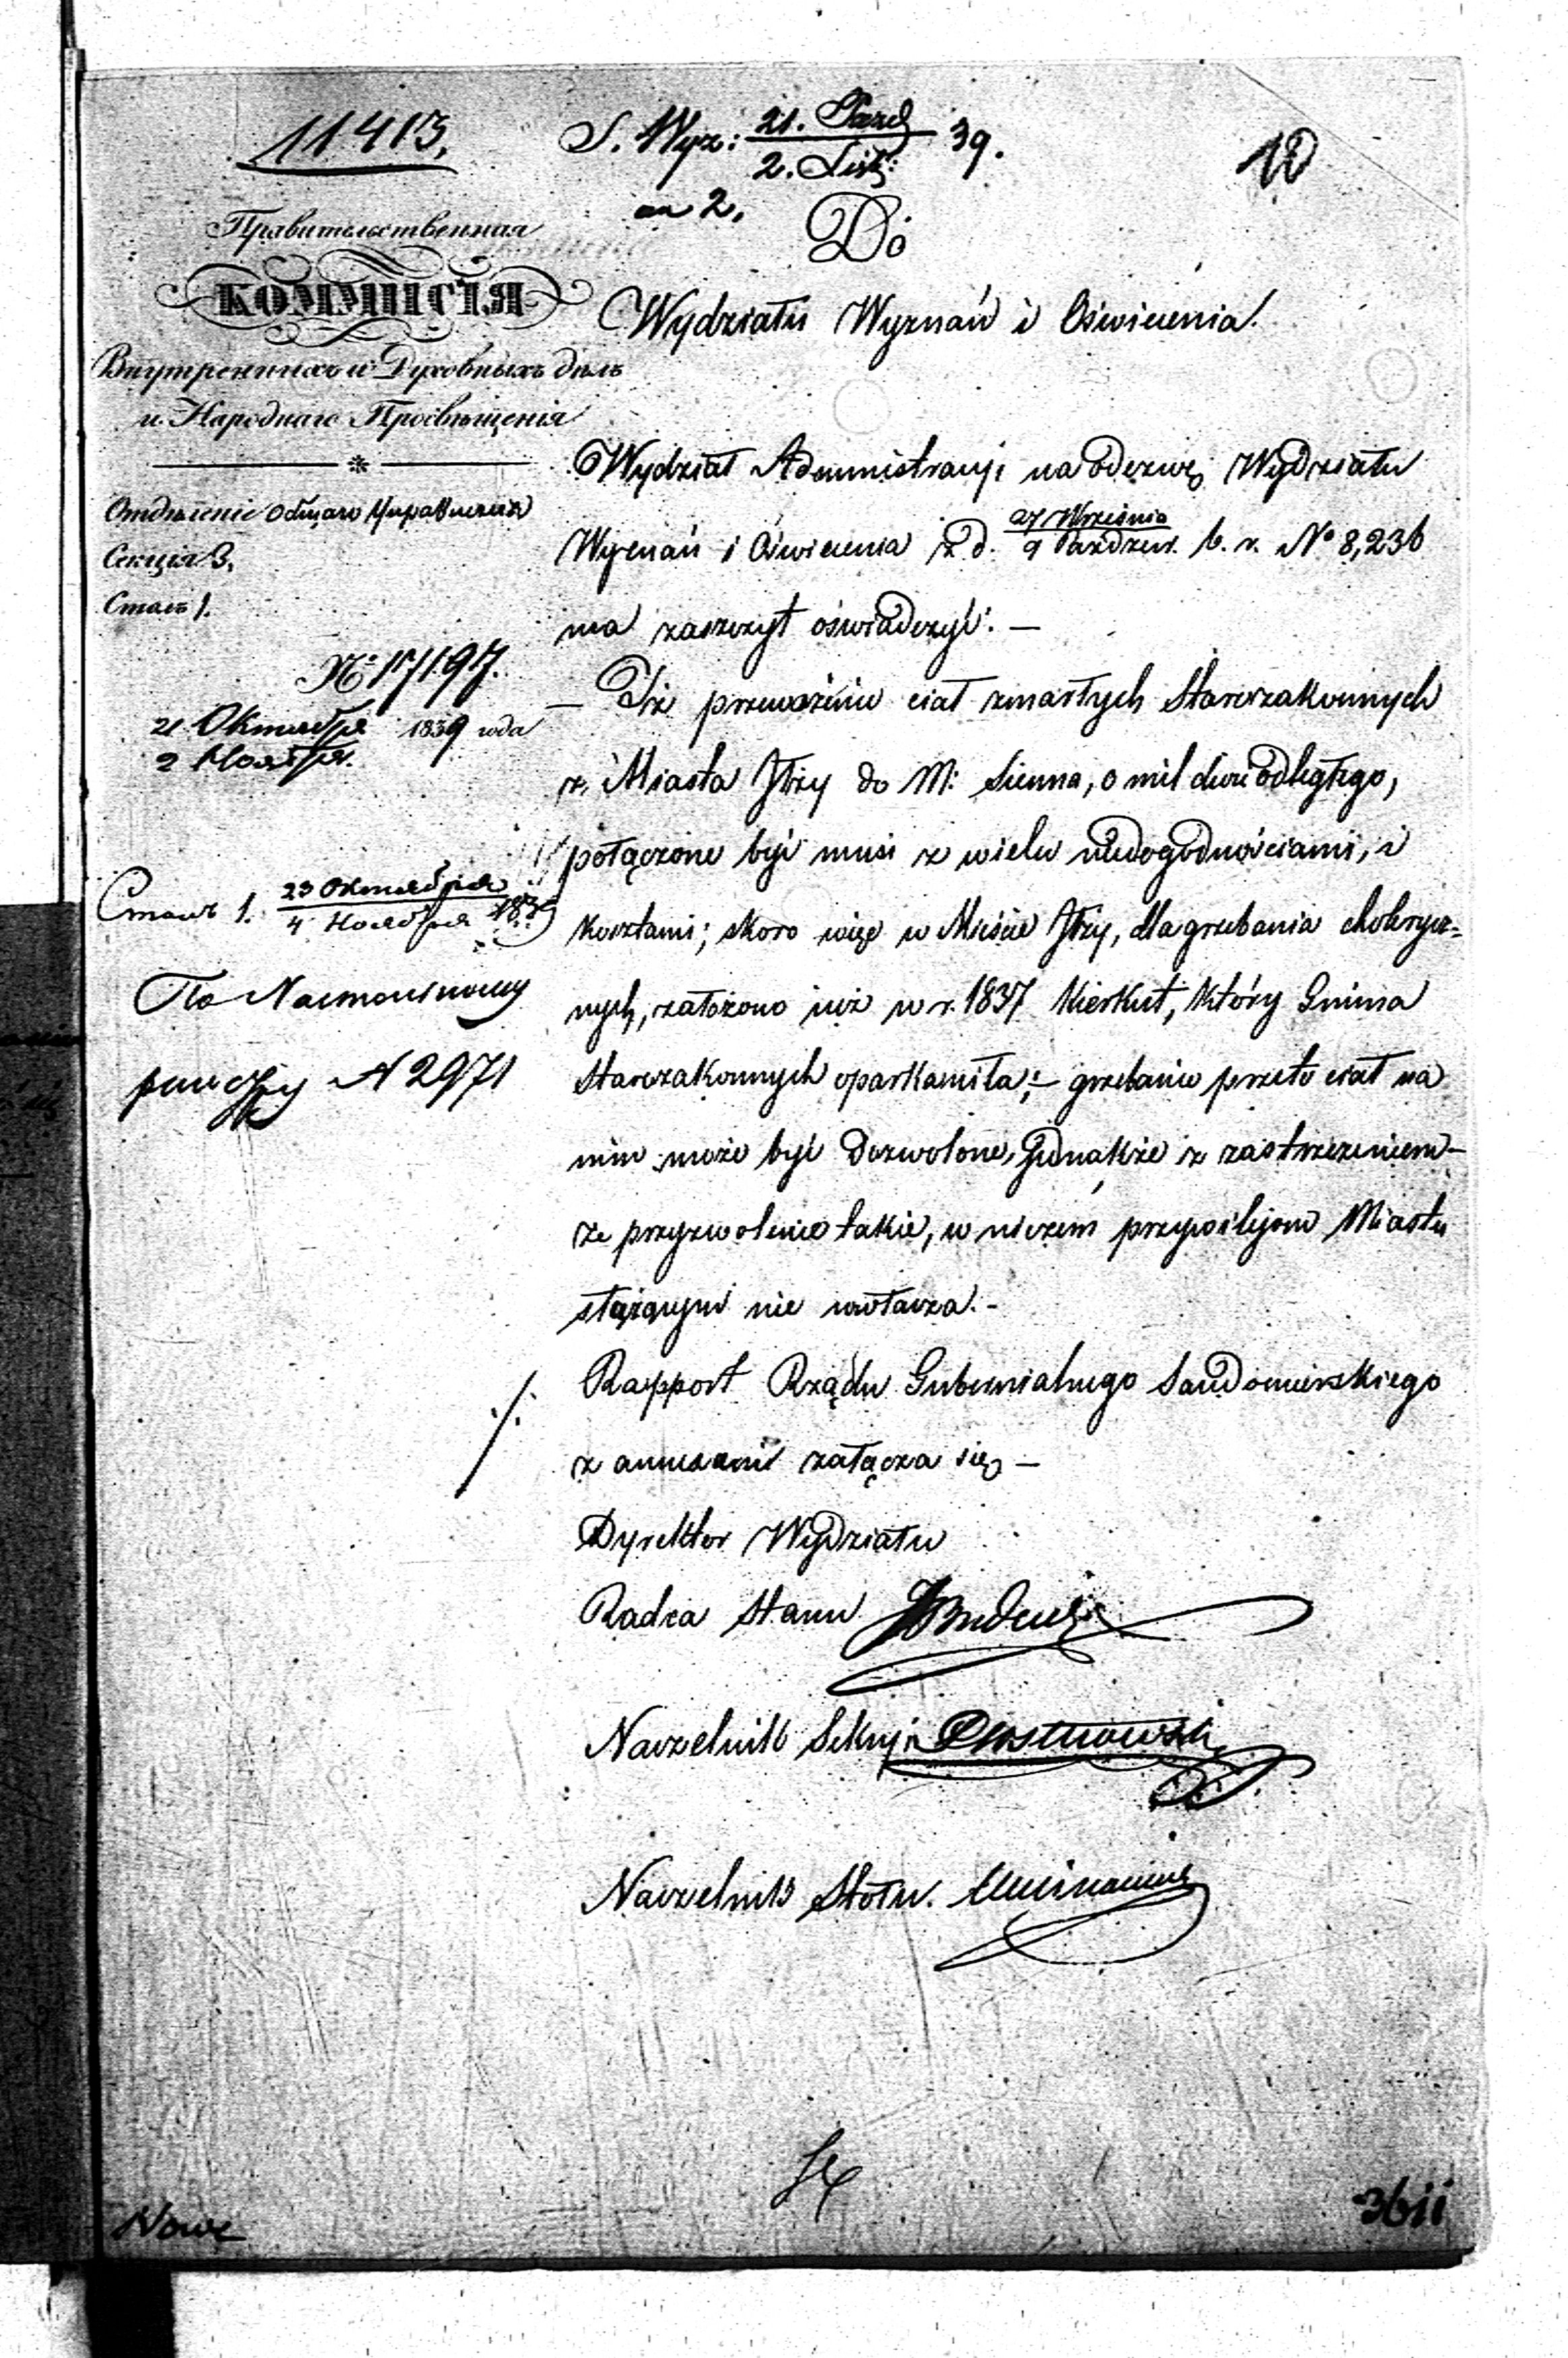 11413.
S. Wyz: 21. Pazd 39.
2. List:
an 2.
10
Правительственная
КОММИСІЯ
Внутреннихъ и Духовныхъ дѣлъ
и Народнаго Просвѣщенія
Отдѣленіе Общаго Управленія
Секція 3.
Столъ 1.
№ 17197.
21 Октября 1839 года
2 Ноября.
Столъ 1. 23 Октября 1839
4 Ноября
По
№ 2971
Do
Wydziału Wyznań i Oświecenia.
Wydział Administracyi na odezwę Wydziału
Wyznań i Oświecenia z d. 27 Września
9 Paździer. b. r. No 8,236
ma zaszczyt oświadczyć. —
— Iż przewożenie ciał zmarłych Starozakonnych
z Miasta Iłży do M: Sienna, o mil dwie odległego,
połączone być musi z wielu niedogodnościami, i
kosztami; skoro więc w Mieście Iłży, dla grzebania cholerycz=
nych, założono już w r. 1837 Kierkut, który Gmina
Starozakonnych oparkaniła; — grzebanie przeto ciał na
nim może być dozwolone, jednakże z zastrzeżeniem —
że przyzwolenie takie, w niczém przywilejom Miastu
służącym nie uwłacza. -
Rapport Rządu Gubernialnego Sandomierskiego
z annexami załącza się —
Dyrektor Wydziału
Radca Stanu
Naczelnik Sekcyi
Naczelnik Stołu.
Nowe
36ii